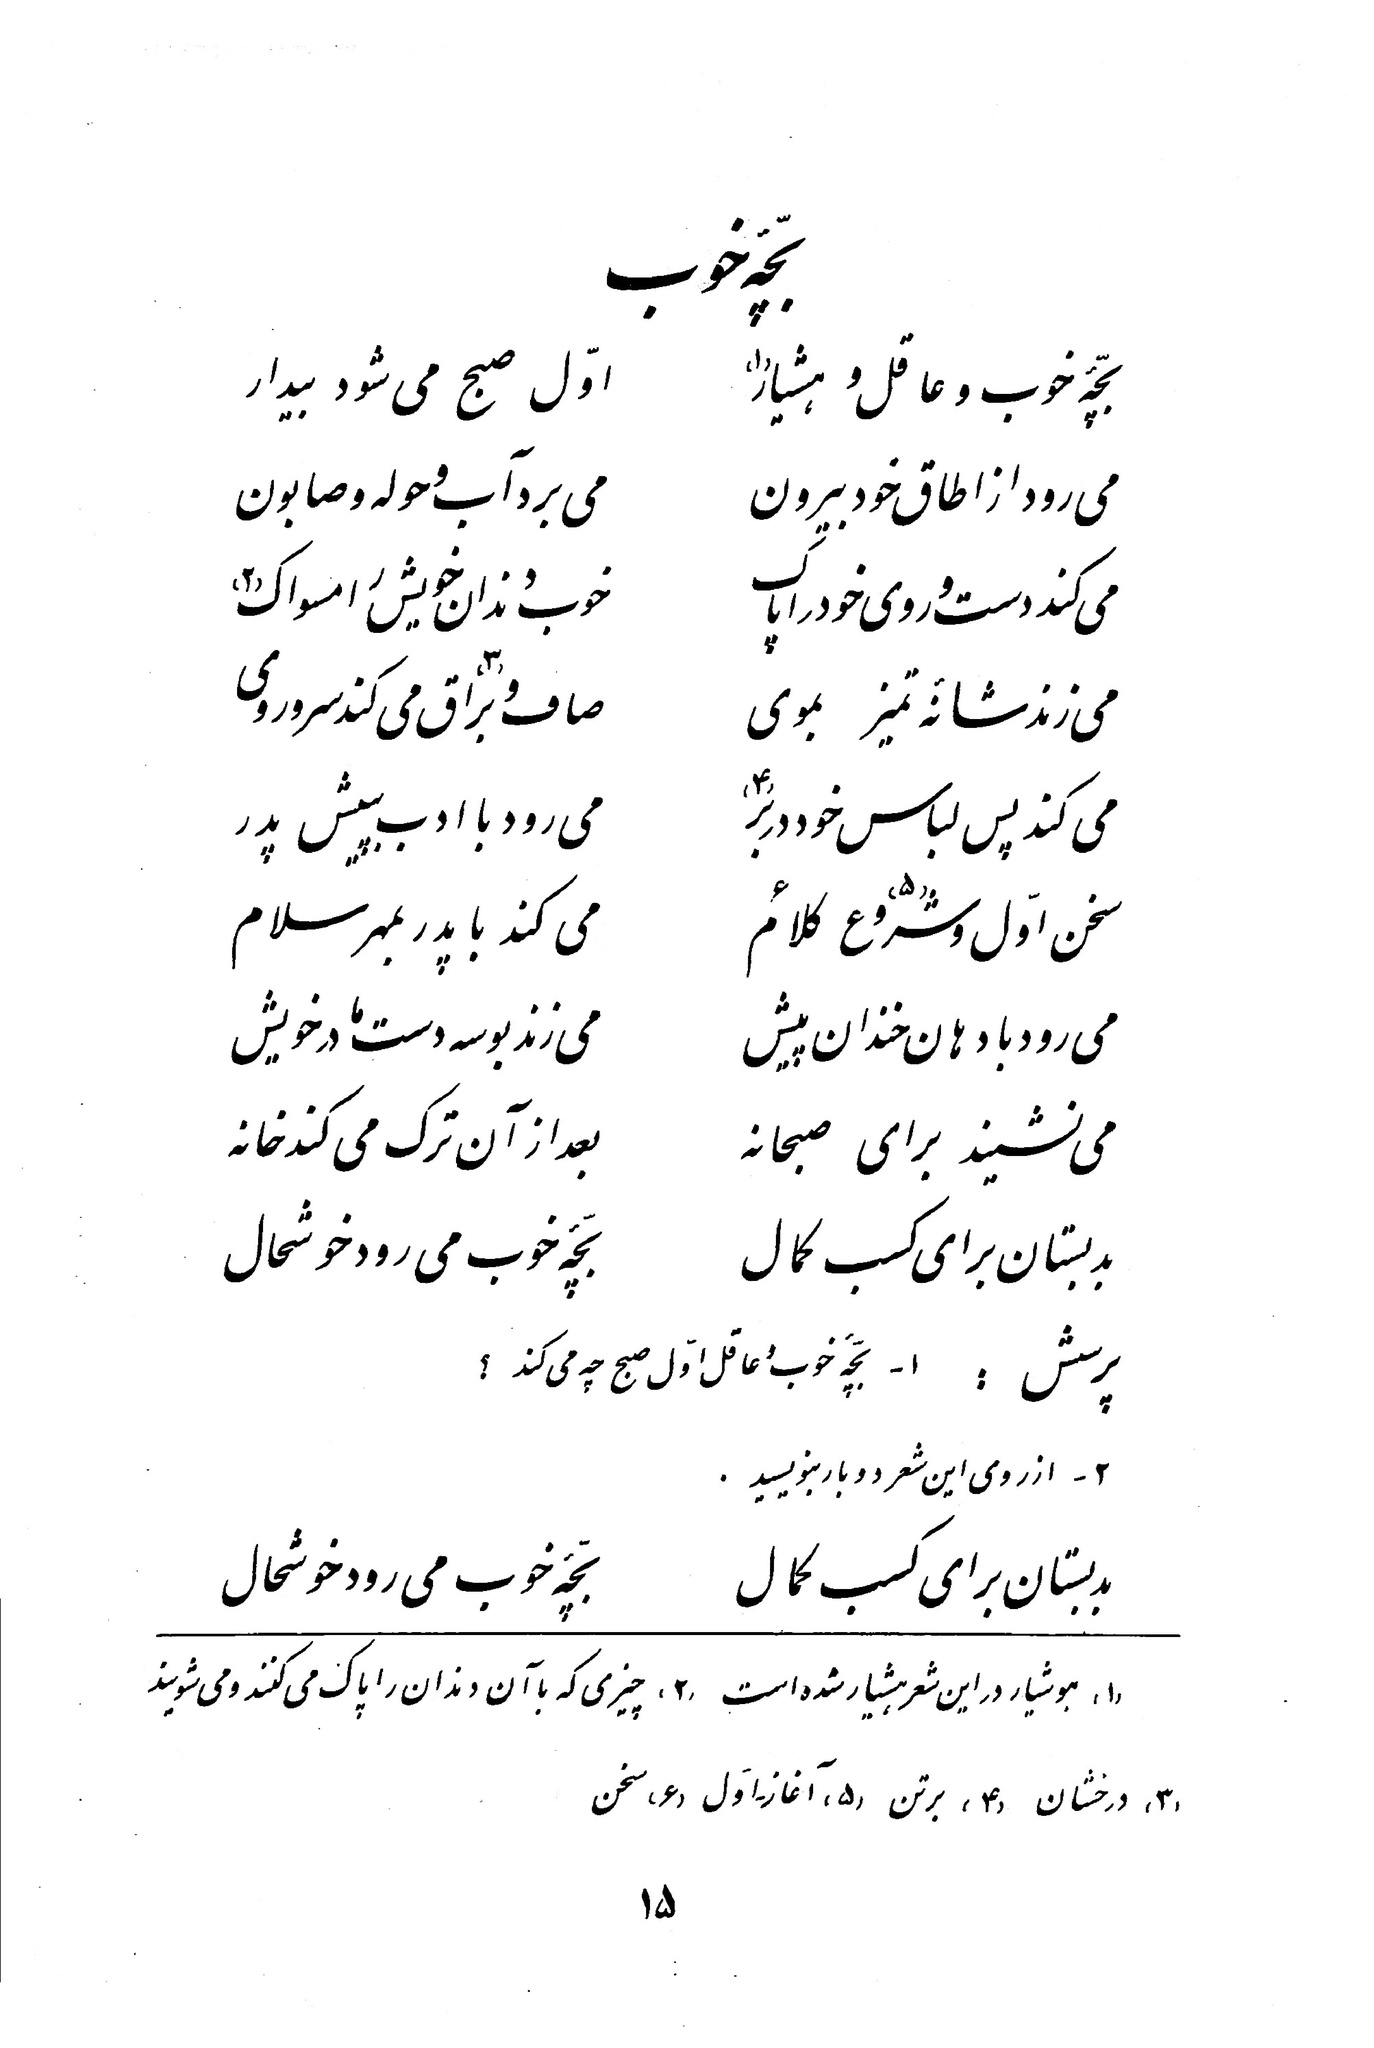 بچّهٔ خوب
بچّهٔ خوب و عاقل و هشیار(۱) اوّل صبح می شود بیدار
می رود از اطاق خود بیرون می برد آب و حوله و صابون
می کند دست و روی خود را پاک خوب دندان خویش را مسواک(۲)
می زند شانهٔ تمیز بموی صاف و برّاق(۳) می کند سر و روی
می کند پس لباس خود در بر(۴) می رود با ادب بپیش پدر
سخن اوّل و شروع(۵) کلام۶ می کند با پدر بمهر سلام
می رود با دهان خندان پیش می زند بوسه دست مادر خویش
می نشیند برای صبحانه بعد از آن ترک می کند خانه
بدبستان برای کسب کمال بچّهٔ خوب می رود خوشحال
پرسش : ۱- بچّهٔ خوب و عاقل اوّل صبح چه می کند ؟
۲- از روی این شعر دو بار بنویسید .
بدبستان برای کسب کمال بچّهٔ خوب می رود خوشحال
(۱) هوشیار در این شعر هشیار شده است (۲) چیزی که با آن دندان را پاک می کنند و می شویند
(۳) درخشان (۴) بر تن (۵) آغاز-اوّل (۶) سخن
۱۵